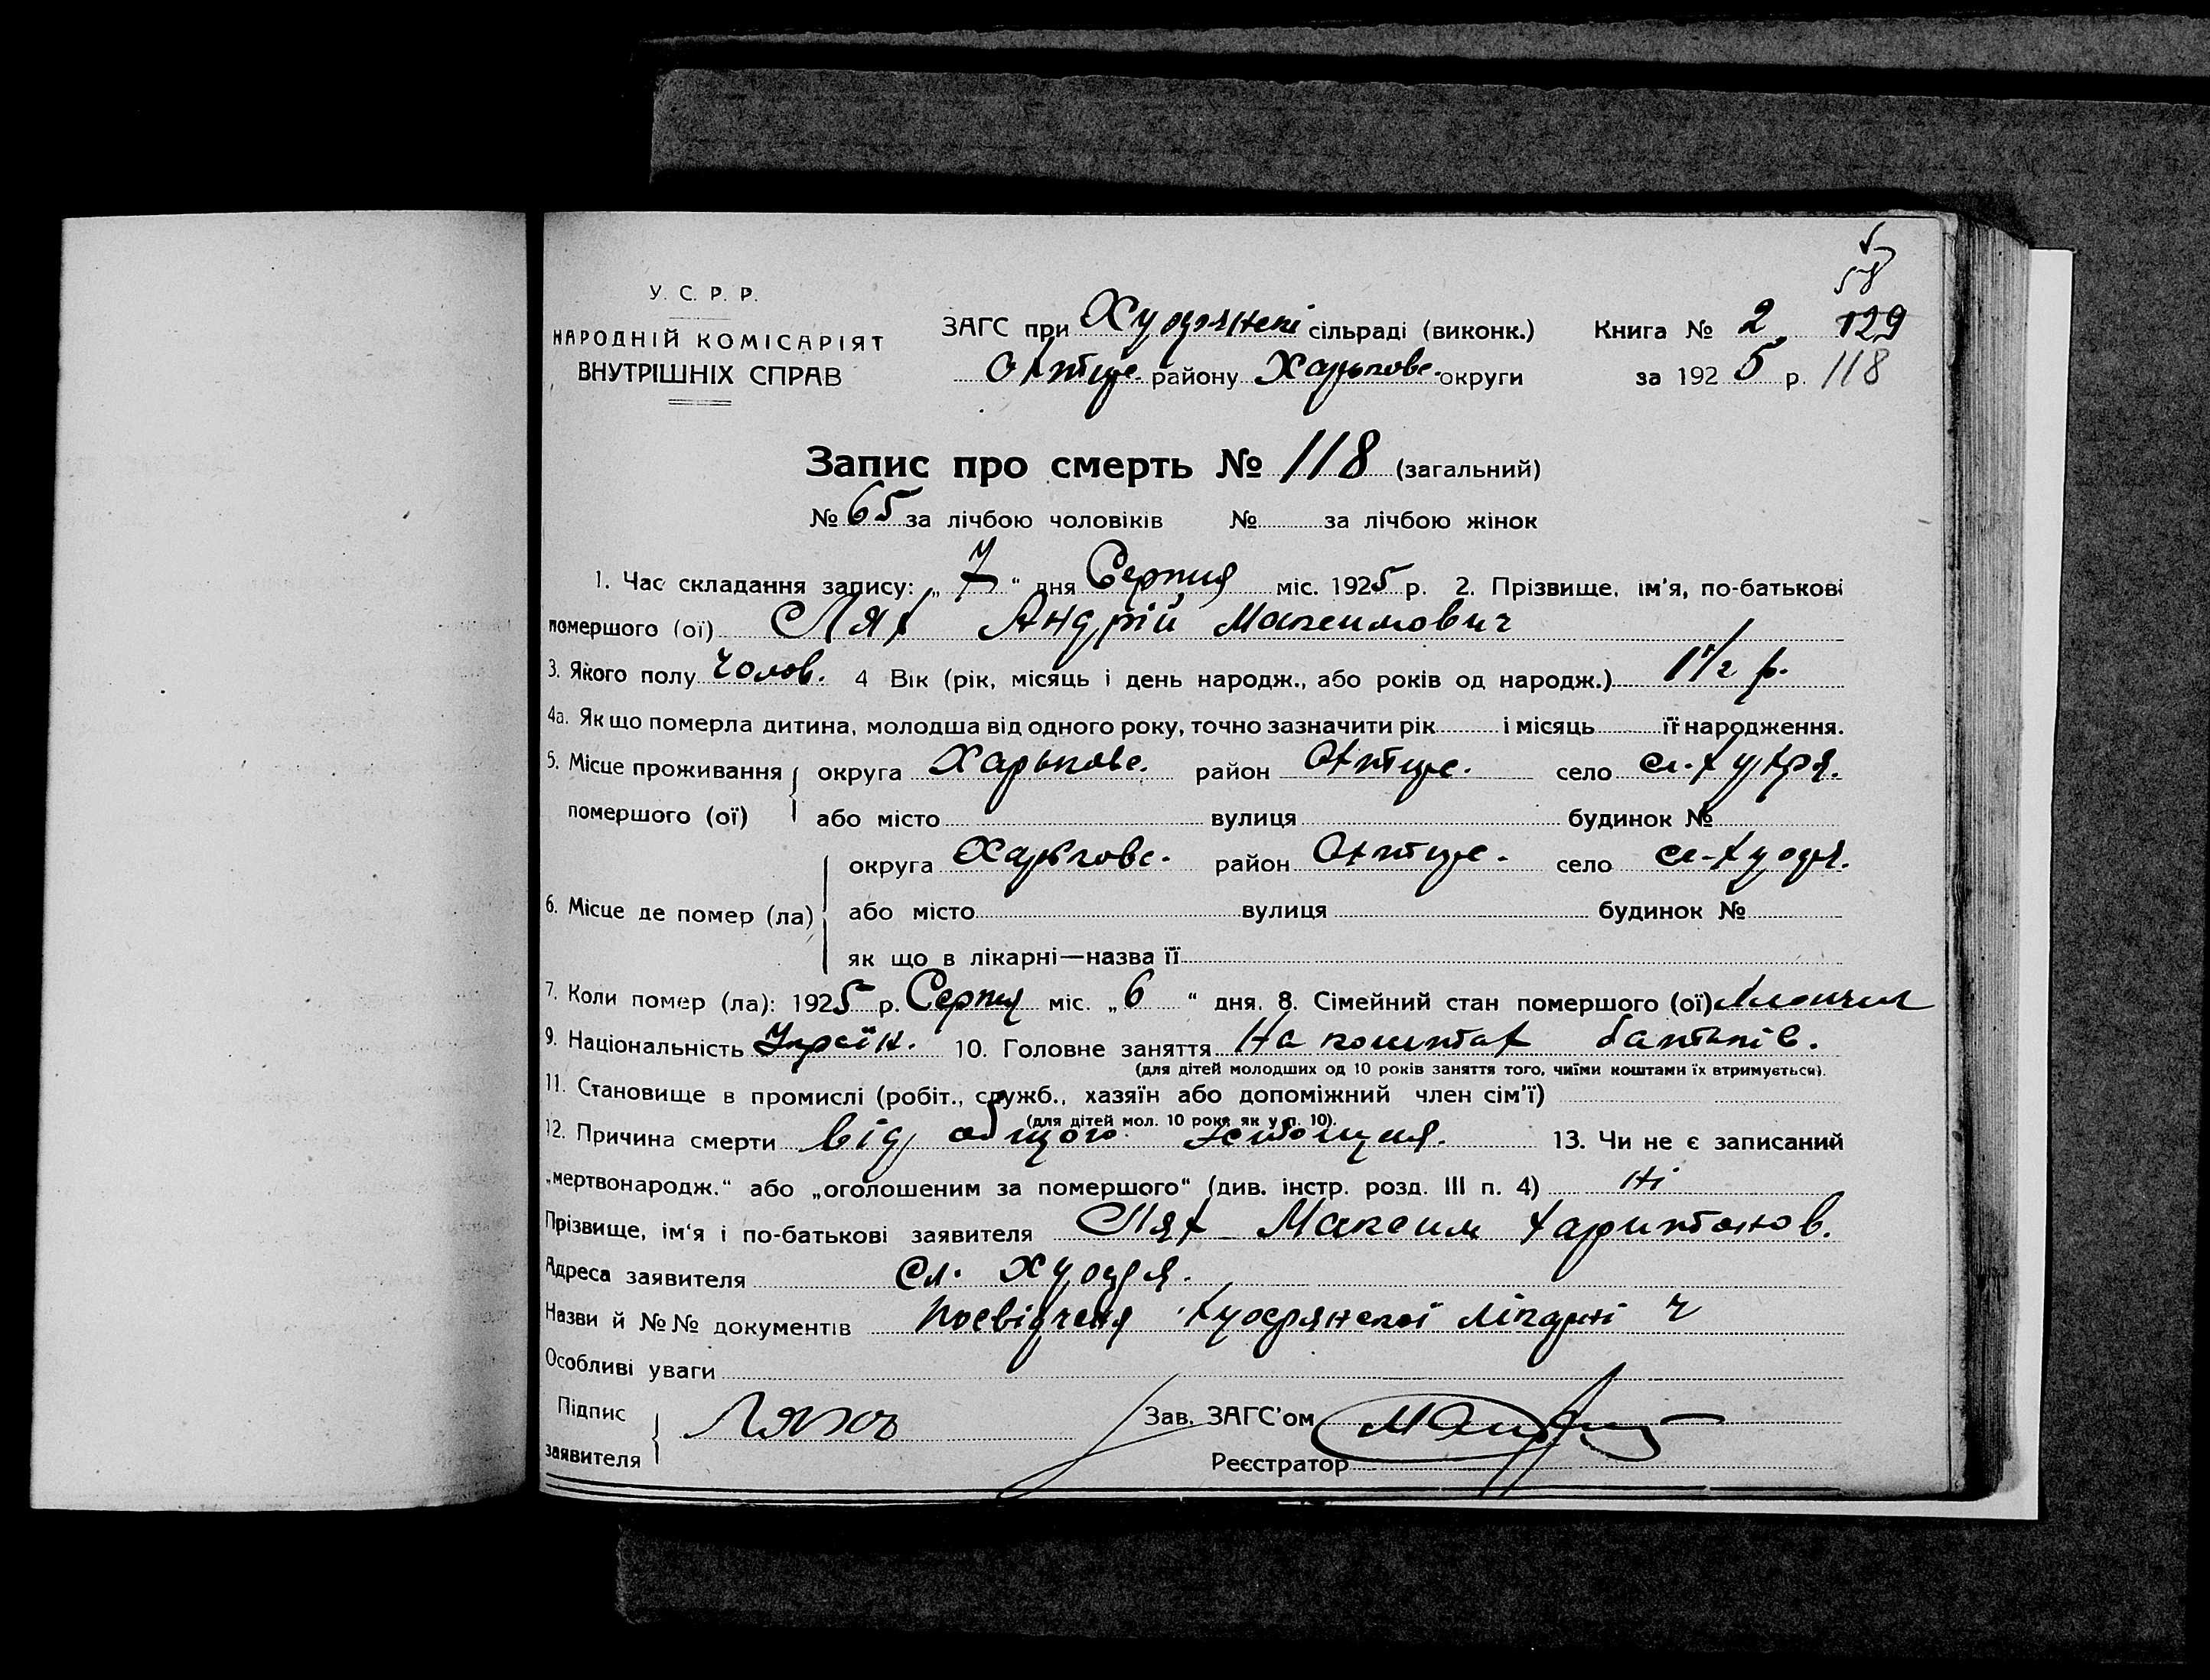 58
У. С. Р. Р.
НАРОДНІЙ КОМІСАРІЯТ
ВНУТРІШНІХ СПРАВ
ЗАГС при Худрянскі сільраді (виконк.) Книга № 2 129
Охтирс. району Харькове. округи за 1925 р. 118
Запис про смерть № 118 (загальний)
№ 65 за лічбою чоловіків № за лічбою жінок
1. Час складання запису: „ 7 “ дня Серпня міс. 1925 р. 2. Прізвище, ім'я, по-батькові
помершого (ої) Лях Андрій Максимович
3. Якого полу Чолов. 4 Вік (рік, місяць і день народж., або років од народж.) 1 1/2 р.
4а. Як що померла дитина, молодша від одного року, точно зазначити рік і місяць її народження.
5. Місце проживання округа Харькове. район село
помершого (ої) або місто вулиця будинок №
округа Харькове. район село
6. Місце де помер (ла) або місто вулиця будинок №
як що в лікарні—назва її
7. Коли помер (ла): 1925 р. Серпня міс. „ 6 “ дня. 8. Сімейний стан помершого (ої)
9. Національність Україн. 10. Головне заняття На коштах батьків.
(для дітей молодших од 10 років заняття того, чиїми коштами їх втримується).
11. Становище в промислі (робіт., служб., хазяїн або допоміжний член сім'ї)
(для дітей мол. 10 рокв як у п. 10).
12. Причина смерти від общого 13. Чи не є записаний
„мертвонародж.“ або „оголошеним за помершого“ (див. інстр. розд. III п. 4) Ні
Прізвище, ім'я і по-батькові заявителя Лях Максим Харитонов.
Адреса заявителя Сл. Худря.
Назви й №№ документів Посвідченя
Особливі уваги
Підпис
заявителя Ляхъ
Зав. ЗАГС'ом
Реєстратор